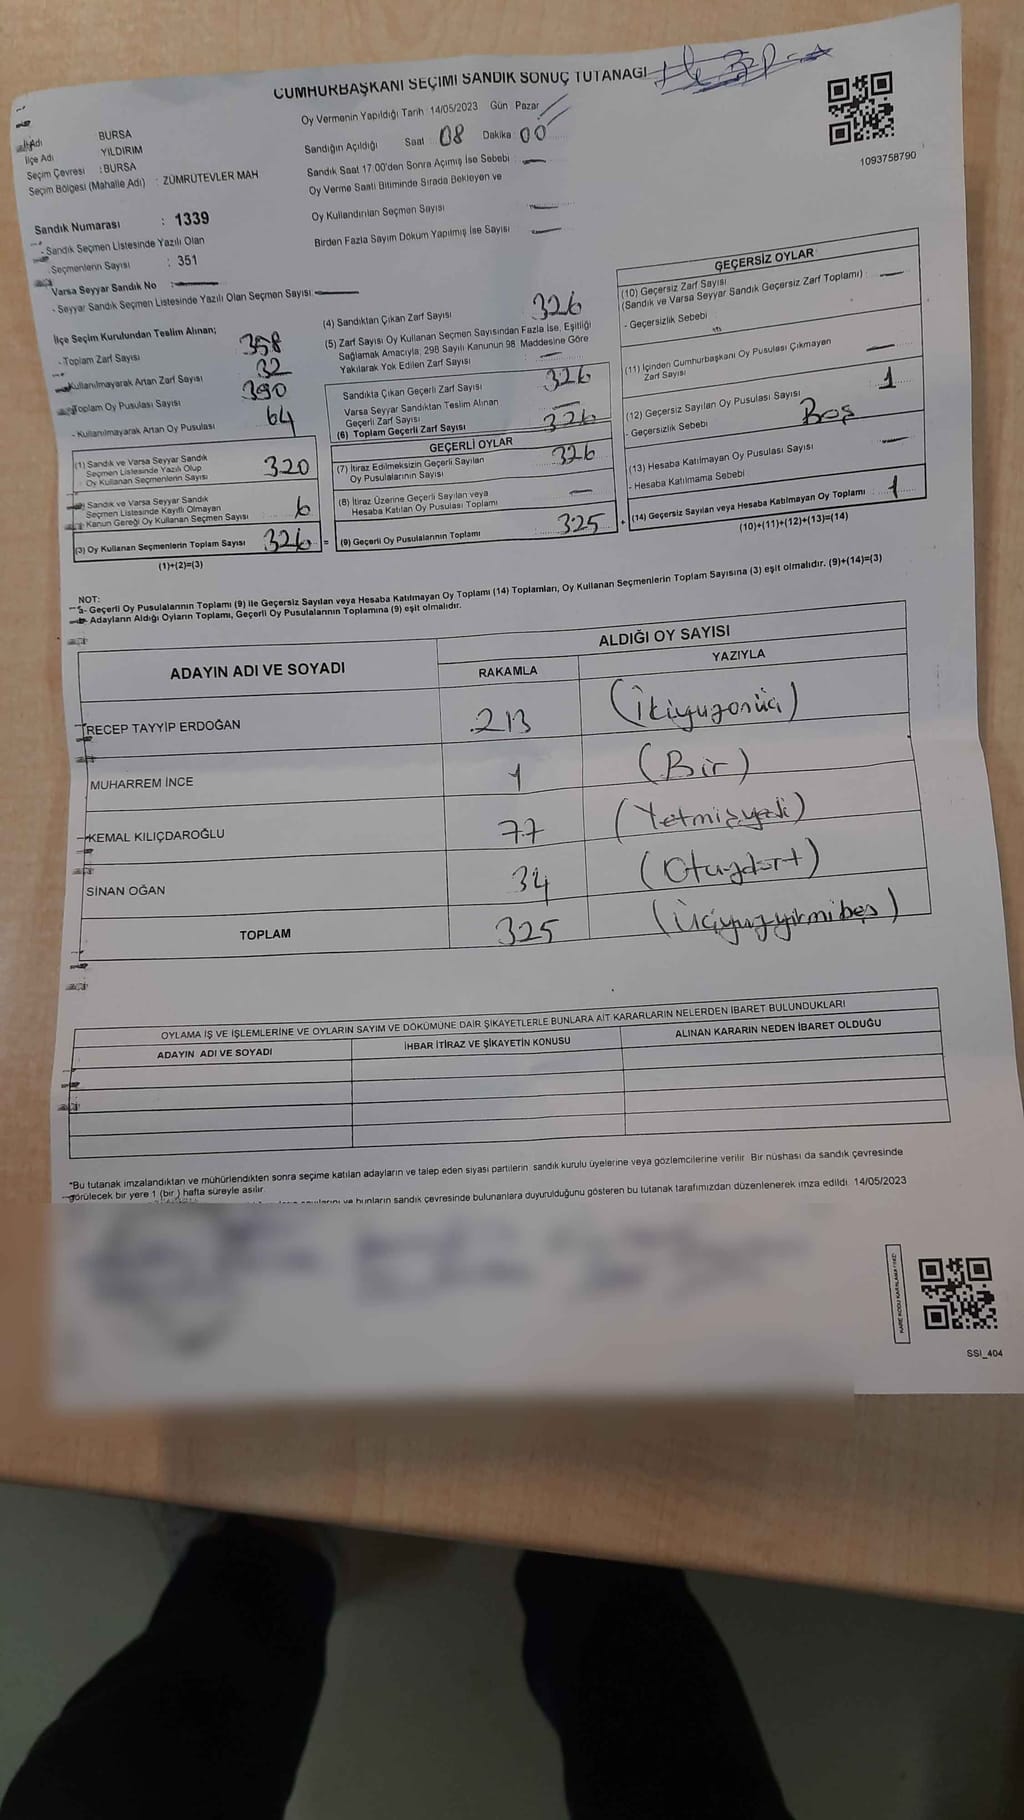 CUMHURBAŞKANI SEÇİMİ SANDIK SONUÇ TUTANAĞI
Oy Vermenin Yapıldığı Tarih : 14/05/2023 Gün : Pazar
Sandığın Açıldığı Saat : 08 Dakika : 00
Sandık Saat 17:00'den Sonra Açımış İse Sebebi : —
Oy Verme Saati Bitiminde Sırada Bekleyen ve
Oy Kullandırılan Seçmen Sayısı —
Birden Fazla Sayım Döküm Yapılmış İse Sayısı —
1093758790
İli Adı BURSA
İlçe Adı YILDIRIM
Seçim Çevresi : BURSA
Seçim Bölgesi (Mahalle Adı) : ZÜMRÜTEVLER MAH
Sandık Numarası : 1339
- Sandık Seçmen Listesinde Yazılı Olan
Seçmenlerin Sayısı : 351
Varsa Seyyar Sandık No : —
- Seyyar Sandık Seçmen Listesinde Yazılı Olan Seçmen Sayısı: —
İlçe Seçim Kurulundan Teslim Alınan;
- Toplam Zarf Sayısı 358
- Kullanılmayarak Artan Zarf Sayısı 32
- Toplam Oy Pusulası Sayısı 390
- Kullanılmayarak Artan Oy Pusulası 64
(1) Sandık ve Varsa Seyyar Sandık
Seçmen Listesinde Yazılı Olup
Oy Kullanan Seçmenlerin Sayısı 320
Sandık ve Varsa Seyyar Sandık
Seçmen Listesinde Kayıtlı Olmayan
Kanun Gereği Oy Kullanan Seçmen Sayısı 6
(3) Oy Kullanan Seçmenlerin Toplam Sayısı 326
(1)+(2)=(3)
(4) Sandıktan Çıkan Zarf Sayısı 326
(5) Zarf Sayısı Oy Kullanan Seçmen Sayısından Fazla İse, Eşitliği
Sağlamak Amacıyla, 298 Sayılı Kanunun 98 Maddesine Göre
Yakılarak Yok Edilen Zarf Sayısı —
Sandıkta Çıkan Geçerli Zarf Sayısı 326
Varsa Seyyar Sandıktan Teslim Alınan
Geçerli Zarf Sayısı —
(6) Toplam Geçerli Zarf Sayısı 326
GEÇERLİ OYLAR
(7) İtiraz Edilmeksizin Geçerli Sayılan
Oy Pusulalarının Sayısı 326
(8) İtiraz Üzerine Geçerli Sayılan veya
Hesaba Katılan Oy Pusulası Toplamı —
= (9) Geçerli Oy Pusulalarının Toplamı 325 +
GEÇERSİZ OYLAR
(10) Geçersiz Zarf Sayısı
(Sandık ve Varsa Seyyar Sandık Geçersiz Zarf Toplamı) : —
- Geçersizlik Sebebi
(11) İçinden Cumhurbaşkanı Oy Pusulası Çıkmayan
Zarf Sayısı —
(12) Geçersiz Sayılan Oy Pusulası Sayısı 1
- Geçersizlik Sebebi Boş
(13) Hesaba Katılmayan Oy Pusulası Sayısı —
- Hesaba Katılmama Sebebi
(14) Geçersiz Sayılan veya Hesaba Katılmayan Oy Toplamı 1
(10)+(11)+(12)+(13)=(14)
NOT:
a- Geçerli Oy Pusulalarının Toplamı (9) ile Geçersiz Sayılan veya Hesaba Katılmayan Oy Toplamı (14) Toplamları, Oy Kullanan Seçmenlerin Toplam Sayısına (3) eşit olmalıdır. (9)+(14)=(3)
b- Adayların Aldığı Oyların Toplamı, Geçerli Oy Pusulalarının Toplamına (9) eşit olmalıdır.
ADAYIN ADI VE SOYADI
ALDIĞI OY SAYISI
RAKAMLA YAZIYLA
RECEP TAYYİP ERDOĞAN 213 (İkiyüzonüç)
MUHARREM İNCE 1 (Bir)
KEMAL KILIÇDAROĞLU 77 (Yetmişyedi)
SİNAN OĞAN 34 (Otuzdört)
TOPLAM 325 (Üçyüzyirmibeş)
OYLAMA İŞ VE İŞLEMLERİNE VE OYLARIN SAYIM VE DÖKÜMÜNE DAİR ŞİKAYETLERLE BUNLARA AİT KARARLARIN NELERDEN İBARET BULUNDUKLARI
ADAYIN ADI VE SOYADI İHBAR İTİRAZ VE ŞİKAYETİN KONUSU ALINAN KARARIN NEDEN İBARET OLDUĞU
*Bu tutanak imzalandıktan ve mühürlendikten sonra seçime katılan adayların ve talep eden siyasi partilerin sandık kurulu üyelerine veya gözlemcilerine verilir. Bir nüshası da sandık çevresinde
görülecek bir yere 1 (bir) hafta süreyle asılır.
ve bunların sandık çevresinde bulunanlara duyurulduğunu gösteren bu tutanak tarafımızdan düzenlenerek imza edildi. 14/05/2023
SSI_404